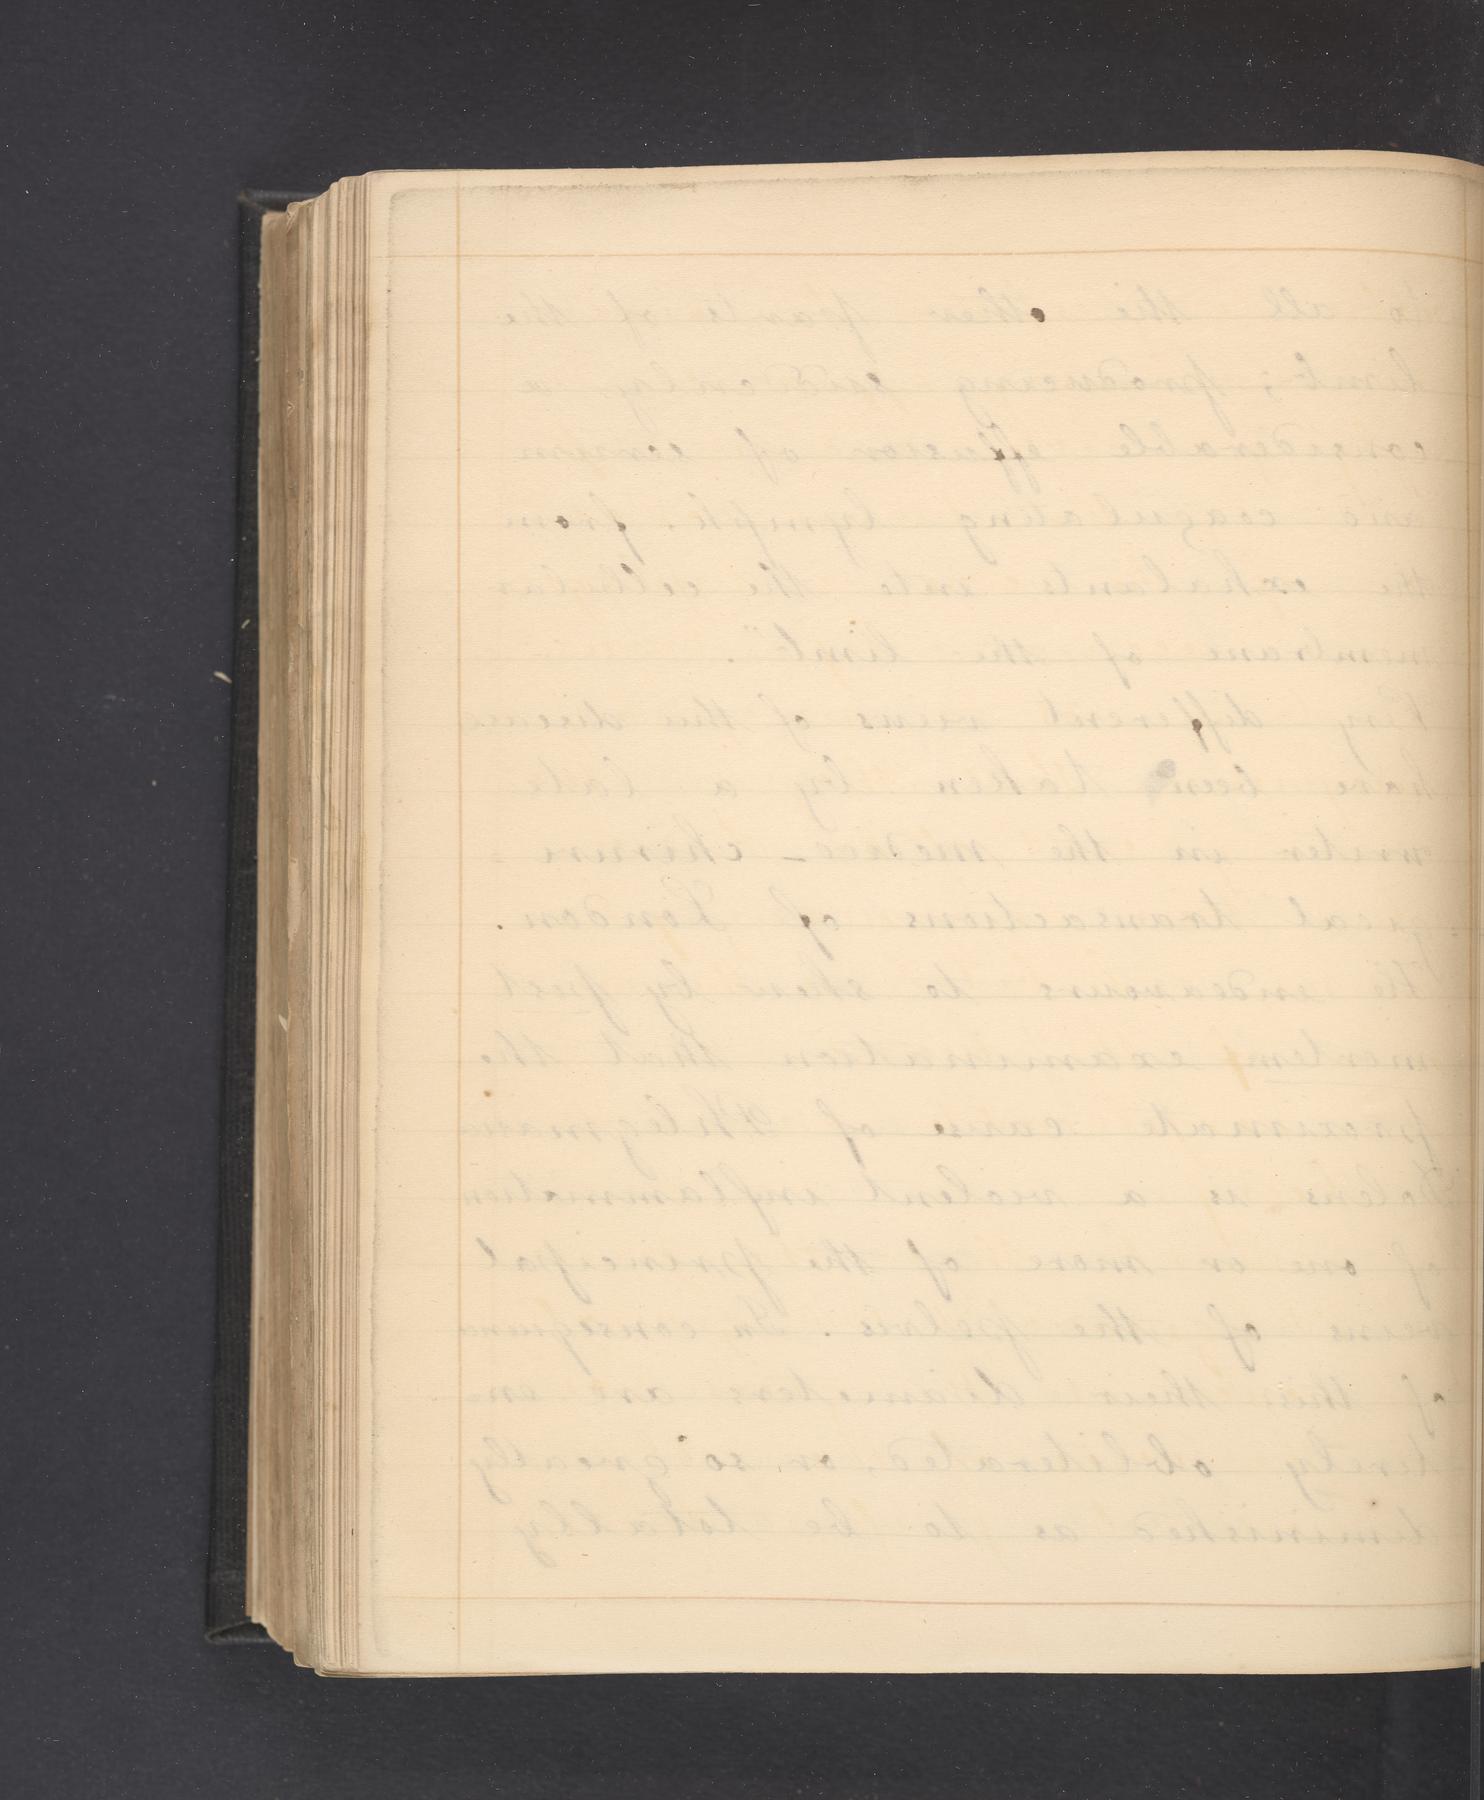 to all the other parts of the
limb; producing suddenly, a
considerable effusion of serum
and coagulating lymph, from
the exhalants into the cellular
membrane of the limb".
Very different views of this disease
have been taken by a late
writer in the medico-chirur=
gical transactions of London.
He endeavours to shew by post
mortem examination that the
proximate cause of Phlegmasia
Dolens is a violent inflammation
of one or more of the principal
veins of the pelvis. In consequence
of this their diameters are en-
tirely obliterated, or so greatly
diminished as to be totally